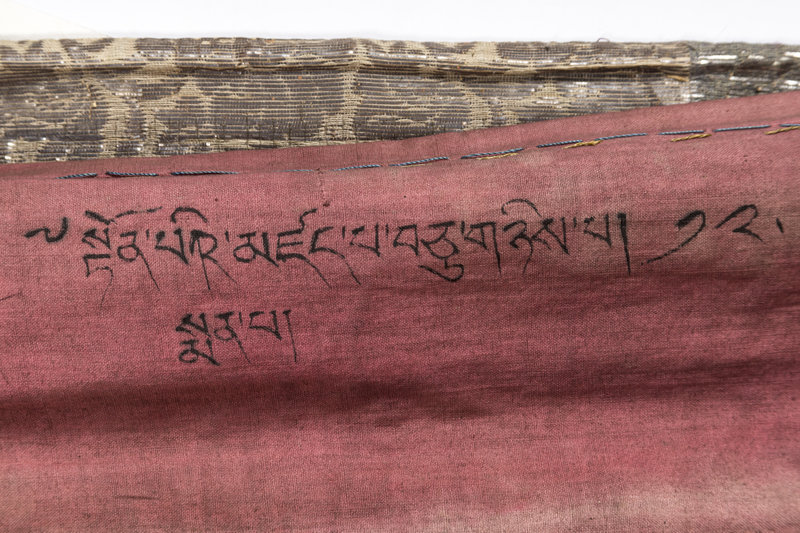 ༄ སྟོན་པའི་མཛད་པ་བཅུ་གཉིས་པ། ༡༢
སྨན་པ།